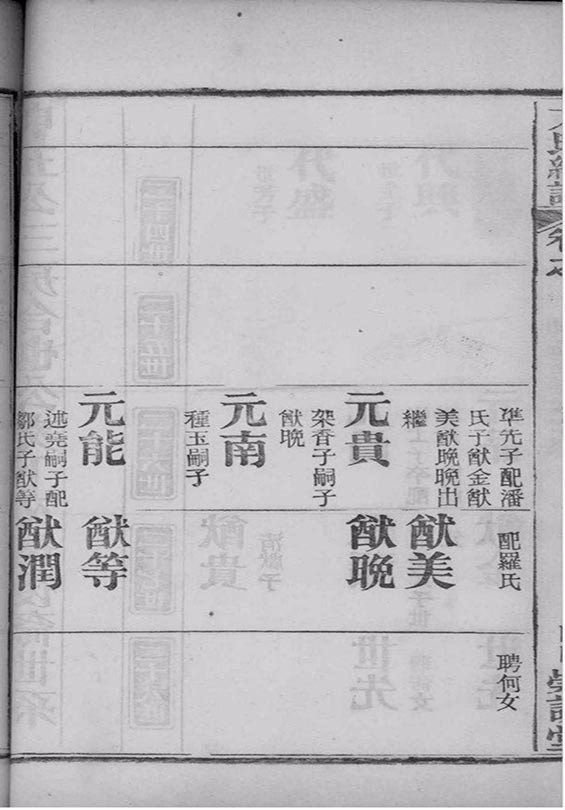 氏續譜
卷之
準先子配潘
氏子猷金猷
美猷晚晚出
繼
元貴
架香子嗣子
猷晚
元南
種玉嗣子
元能
述堯嗣子配
鄒氏子猷等
配羅氏
猷美
猷晚
猷等
猷潤
聘何女